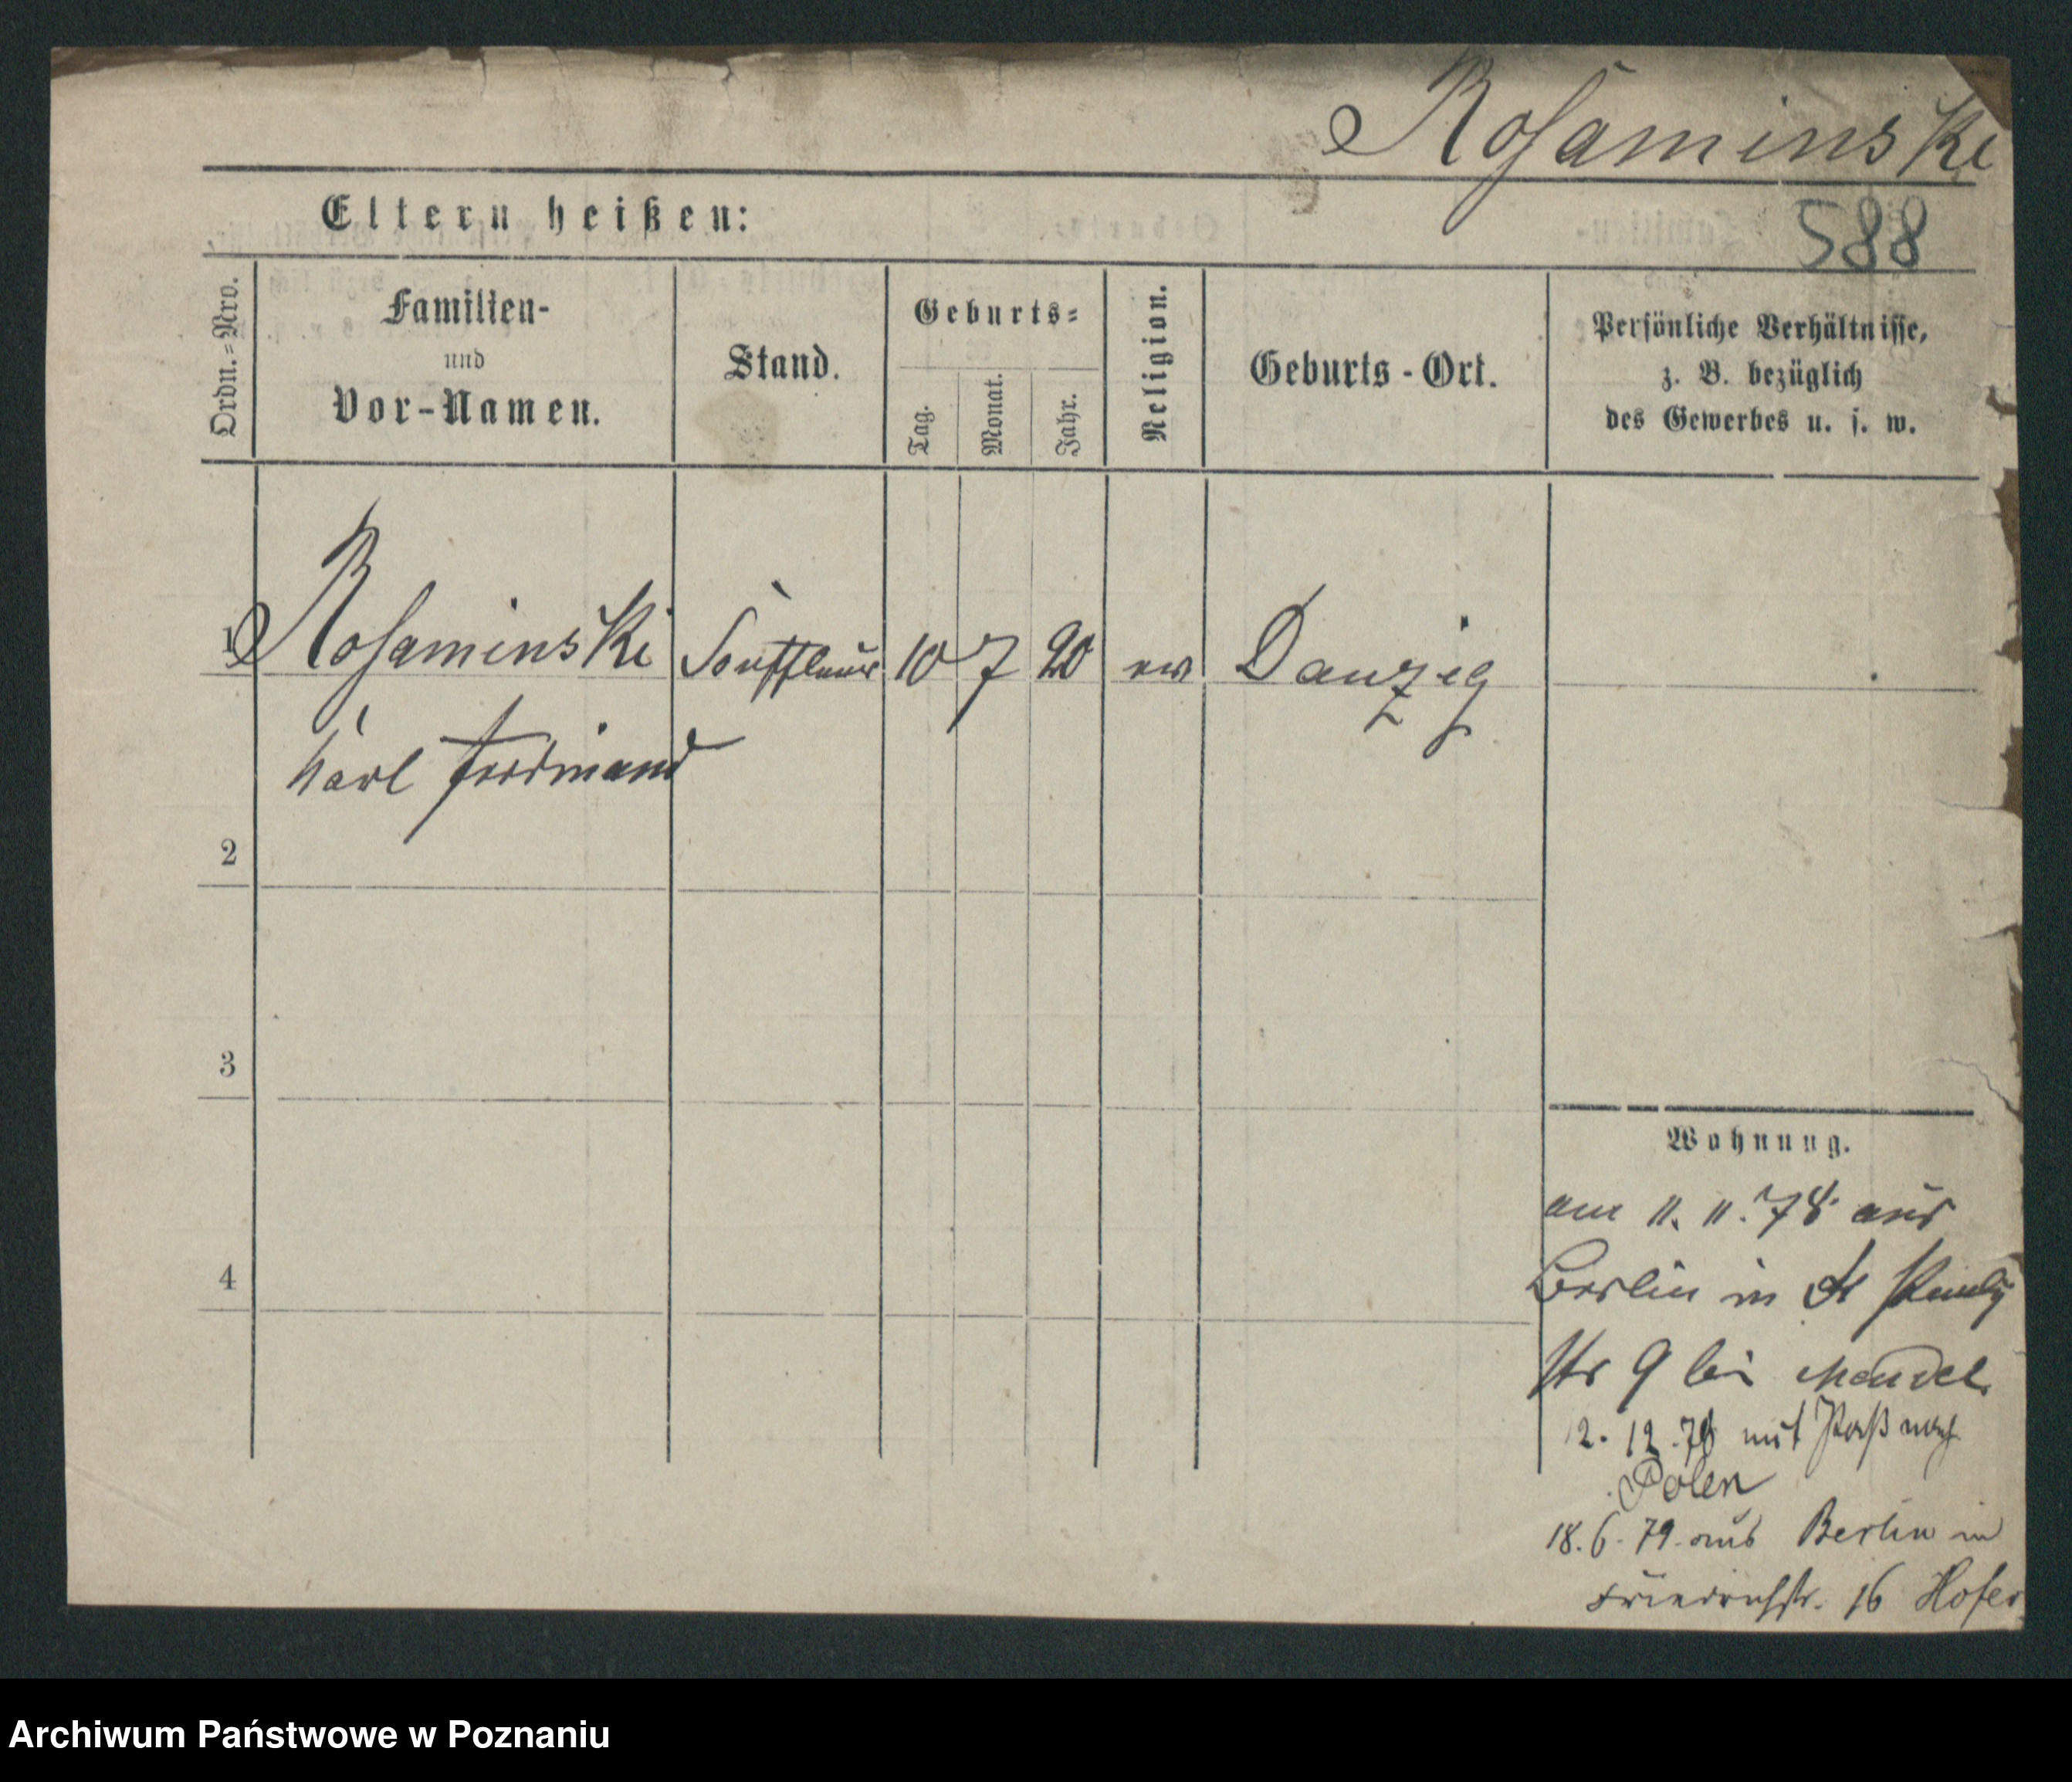 Rosaminski
588
Eltern heißen:
Ordn.=Nro.
Familien-
und
Vor-Namen.
Stand.
Geburts=
Tag.
Monat.
Jahr.
Religion.
Geburts-Ort.
Persönliche Verhältnisse,
z. B. bezüglich
des Gewerbes u. s. w.
1 Rosaminski Souffleur 10 7 20 ev Danzig
Karl Ferdinand
2
3
4
Wohnung.
am 11. 11. 78 aus
Berlin in St
Str 9 bei Mendel.
12. 12. 78 mit Paß nach
Polen
18. 6. 79. aus Berlin in
Friedrichstr. 16 Hofer